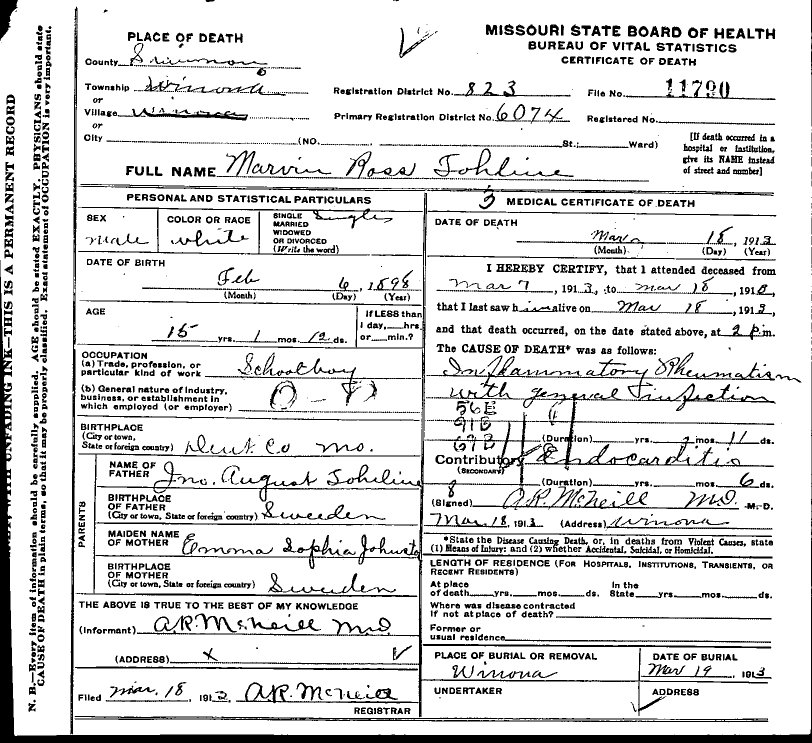 MISSOURI STATE BOARD OF HEALTH
BUREAU OF VITAL STATISTICS
CERTIFICATE OF DEATH
PLACE OF DEATH
County
Township Winona
or
Village Winona
or
City (NO. St.; Ward)
Registration District No. 823 File No. 11790
Primary Registration District No. 6074 Registered No.
[If death occurred in a
hospital or institution,
give its NAME instead
of street and number]
FULL NAME Marvin Ross Tohline
PERSONAL AND STATISTICAL PARTICULARS
SEX
male
COLOR OR RACE
white
SINGLE
MARRIED
WIDOWED
OR DIVORCED
(Write the word)
Single
DATE OF BIRTH
Feb 6, 1898
(Month) (Day) (Year)
AGE
15 yrs. 1 mos. 12 ds.
If LESS than
1 day, hrs.
or min.?
OCCUPATION
(a) Trade, profession, or
particular kind of work Schoolboy
(b) General nature of industry,
business, or establishment in
which employed (or employer)
BIRTHPLACE
(City or town,
State or foreign country) Dent Co Mo.
PARENTS
NAME OF
FATHER Jno. August Tohline
BIRTHPLACE
OF FATHER
(City or town, State or foreign country) Sweden
MAIDEN NAME
OF MOTHER Emma Sophia
BIRTHPLACE
OF MOTHER
(City or town, State or foreign country) Sweden
THE ABOVE IS TRUE TO THE BEST OF MY KNOWLEDGE
(Informant) A.R. McNeill MD
(ADDRESS) x
Filed Mar. 18, 1913 A.R. McNeill
REGISTRAR
3 MEDICAL CERTIFICATE OF DEATH
DATE OF DEATH
Mar 18, 1913
(Month) (Day) (Year)
I HEREBY CERTIFY, that I attended deceased from
Mar 7, 1913, to Mar 18, 191
that I last saw him alive on Mar 18, 1913,
and that death occurred, on the date stated above, at 2 P.m.
The CAUSE OF DEATH* was as follows:
Inflammatory Rheumatism
with general Infection
56E
91B
69B
(Duration) yrs. mos. 11 ds.
Contributory Endocarditis
(SECONDARY)
(Duration) yrs. mos. 6 ds.
8
(Signed) A.R. McNeill MD. M. D.
Mar 18, 1913 (Address) Winona
*State the Disease Causing Death, or, in deaths from Violent Causes, state
(1) Means of Injury: and (2) whether Accidental, Suicidal, or Homicidal.
LENGTH OF RESIDENCE (FOR HOSPITALS, INSTITUTIONS, TRANSIENTS, OR
RECENT RESIDENTS)
At place In the
of death yrs. mos. ds. State yrs. mos. ds.
Where was disease contracted
if not at place of death?
Former or
usual residence
PLACE OF BURIAL OR REMOVAL
Winona
DATE OF BURIAL
Mar 19, 1913
UNDERTAKER
ADDRESS
N. B.—Every item of information should be carefully supplied. AGE should be stated EXACTLY. PHYSICIANS should state
CAUSE OF DEATH in plain terms, so that it may be properly classified. Exact statement of OCCUPATION is very important.
UNFADING INK—THIS IS A PERMANENT RECORD